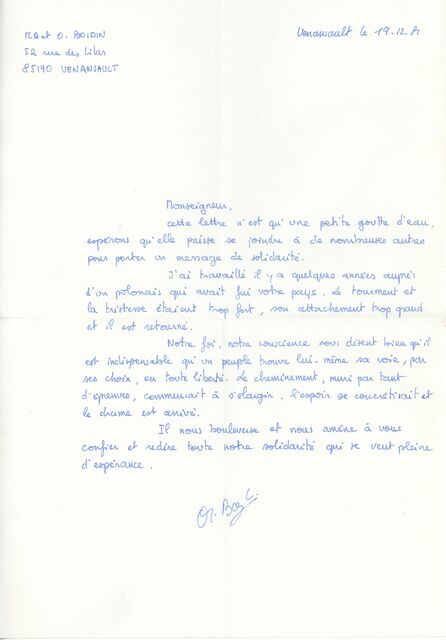 M.A et O. BOIDIN
52 rue des Lilas
85190 VENANSAULT
Venansault le 19.12.81
Monseigneur,
cette lettre n'est qu'une petite goutte d'eau,
espérons qu'elle puisse se joindre à de nombreuses autres
pour porter un message de solidarité.
J'ai travaillé il y a quelques années auprès
d'un polonais qui avait fui votre pays. Le tourment et
la tristesse étaient trop fort, son attachement trop grand
et il est retourné.
Notre foi, notre conscience nous disent bien qu'il
est indispensable qu'un peuple trouve lui-même sa voie, par
ses choix, en toute liberté. Le cheminement, muri par tant
d'épreuves, commençait à s'élargir, l'espoir se concrétisait et
le drame est arrivé.
Il nous bouleverse et nous amène à vous
confier et redire toute notre solidarité qui se veut pleine
d'espérance.